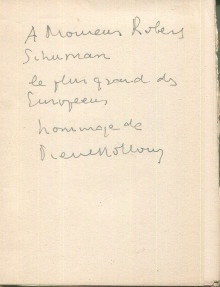 A Monsieur Robert
Schuman
le plus grand des
Européens
hommage de